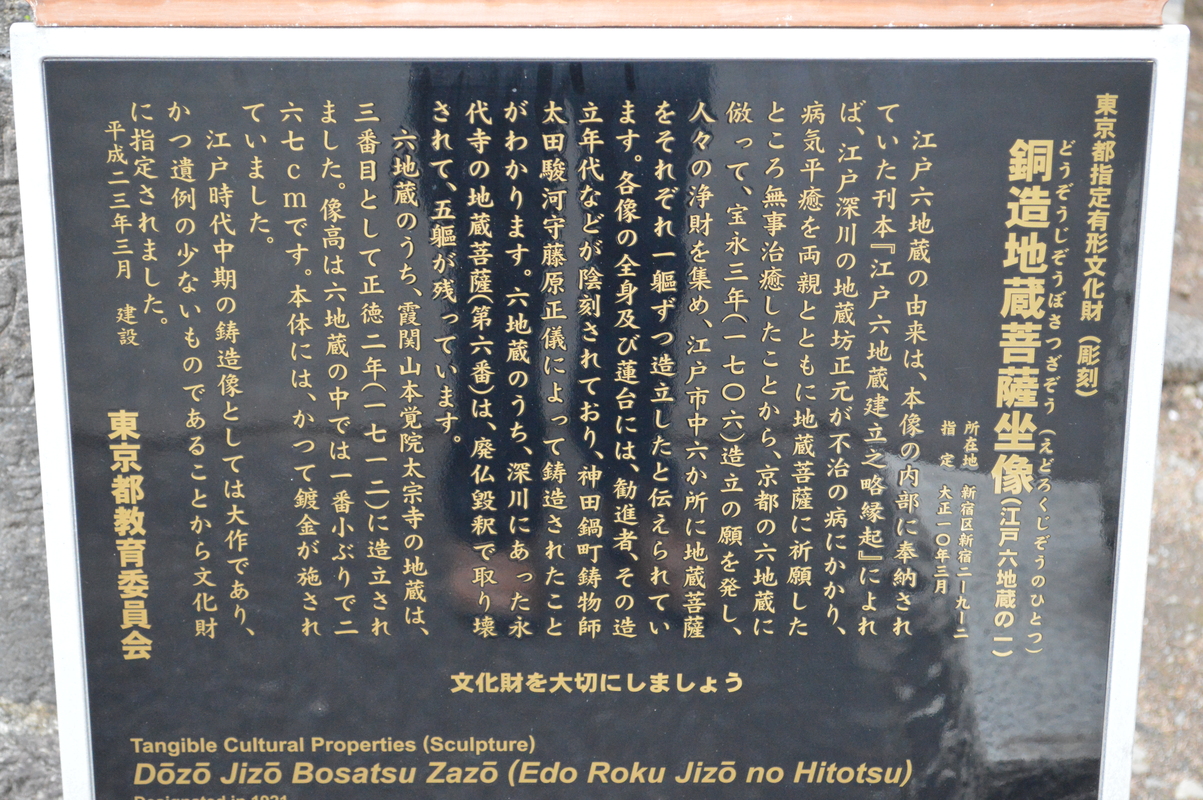 東京都指定有形文化財（彫刻）
どうぞうじぞうぼさつざぞう（えどろくじぞうのひとつ）
銅造地蔵菩薩坐像（江戸六地蔵の一）
所在地　新宿区新宿二―九―二
指　定　大正一〇年三月
江戸六地蔵の由来は、本像の内部に奉納され
ていた刊本『江戸六地蔵建立之略縁起』によれ
ば、江戸深川の地蔵坊正元が不治の病にかかり、
病気平癒を両親とともに地蔵菩薩に祈願した
ところ無事治癒したことから、京都の六地蔵に
倣って、宝永三年（一七〇六）造立の願を発し、
人々の浄財を集め、江戸市中六か所に地蔵菩薩
をそれぞれ一軀ずつ造立したと伝えられてい
ます。各像の全身及び蓮台には、勧進者、その造
立年代などが陰刻されており、神田鍋町鋳物師
太田駿河守藤原正儀によって鋳造されたこと
がわかります。六地蔵のうち、深川にあった永
代寺の地蔵菩薩（第六番）は、廃仏毀釈で取り壊
されて、五軀が残っています。
六地蔵のうち、霞関山本覚院太宗寺の地蔵は、
三番目として正徳二年（一七一二）に造立され
ました。像高は六地蔵の中では一番小ぶりで二
六七ｃｍです。本体には、かつて鍍金が施され
ていました。
江戸時代中期の鋳造像としては大作であり、
かつ遺例の少ないものであることから文化財
に指定されました。
平成二三年三月　建設
東京都教育委員会
文化財を大切にしましょう
Tangible Cultural Properties (Sculpture)
Dōzō Jizō Bosatsu Zazō (Edo Roku Jizō no Hitotsu)
Designated in 1921